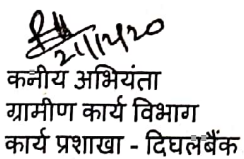 21/12/20
कनीय अभियंता
ग्रामीण कार्य विभाग
कार्य प्रशाखा - दिघलबैंक